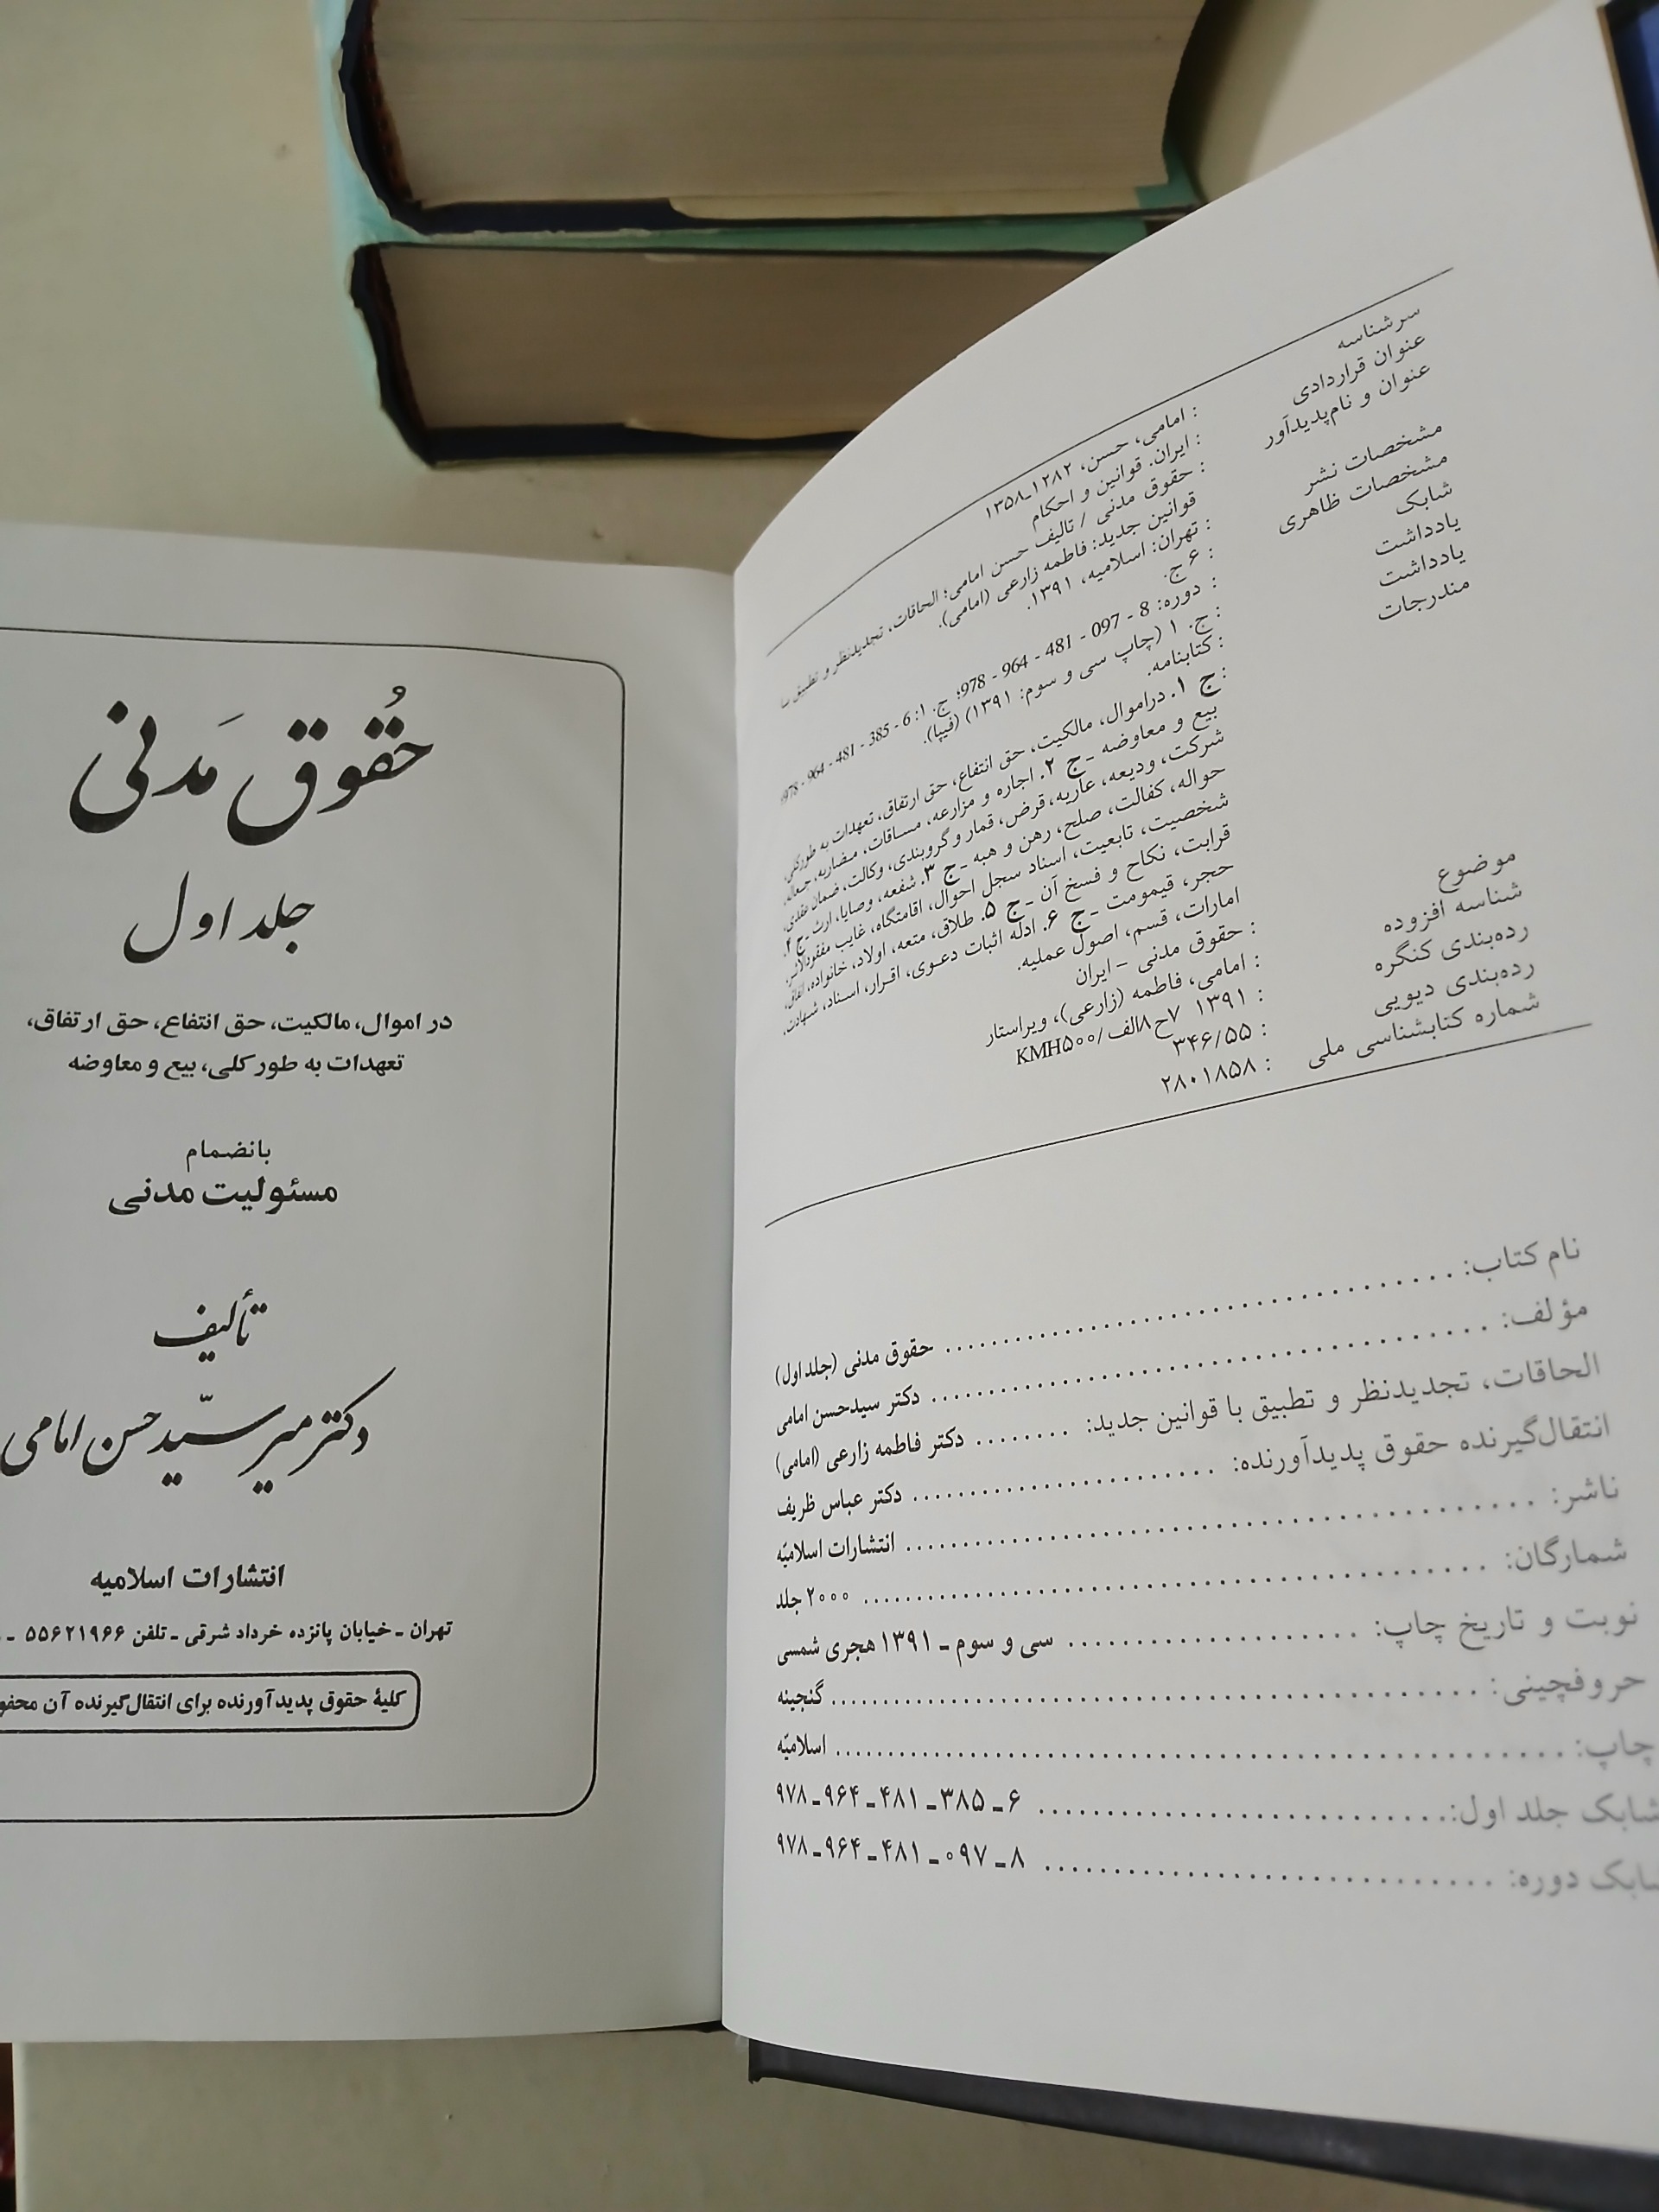 سرشناسه : امامی، حسن، ۱۲۸۲ـ۱۳۵۸
عنوان قراردادی : ایران. قوانین و احکام
عنوان و نام‌پدیدآور : حقوق مدنی / تالیف حسن امامی؛ الحاقات، تجدیدنظر و تطبیق با
قوانین جدید: فاطمه زارعی (امامی).
مشخصات نشر : تهران: اسلامیه، ۱۳۹۱.
مشخصات ظاهری : ۶ ج.
شابک : دوره: 8 - 097 - 481 - 964 - 978؛ ج. ۱: 6 - 385 - 481 - 964 - 978
یادداشت : ج. ۱ (چاپ سی و سوم: ۱۳۹۱) (فیپا).
یادداشت : کتابنامه.
مندرجات : ج ۱. دراموال، مالکیت، حق انتفاع، حق ارتفاق، تعهدات به طورکلی،
بیع و معاوضه ـ ج ۲. اجاره و مزارعه، مساقات، مضاربه، جعاله،
شرکت، ودیعه، عاریه، قرض، قمار و گروبندی، وکالت، ضمان عقدی،
حواله، کفالت، صلح، رهن و هبه ـ ج ۳. شفعه، وصایا، ارث ـ ج ۴.
شخصیت، تابعیت، اسناد سجل احوال، اقامتگاه، غایب مفقودالاثر،
قرابت، نکاح و فسخ آن ـ ج ۵. طلاق، متعه، اولاد، خانواده، انفاق،
حجر، قیمومت ـ ج ۶. ادله اثبات دعوی، اقرار، اسناد، شهادت،
امارات، قسم، اصول عملیه.
موضوع : حقوق مدنی - ایران
شناسه افزوده : امامی، فاطمه (زارعی)، ویراستار
رده‌بندی کنگره : ۱۳۹۱ ۷ح۸الف/KMH۵۰۰
رده‌بندی دیویی : ۳۴۶/۵۵
شماره کتابشناسی ملی : ۲۸۰۱۸۵۸
نام کتاب: حقوق مدنی (جلد اول)
مؤلف: دکتر سیدحسن امامی
الحاقات، تجدیدنظر و تطبیق با قوانین جدید: دکتر فاطمه زارعی (امامی)
انتقال‌گیرنده حقوق پدیدآورنده: دکتر عباس ظریف
ناشر: انتشارات اسلامیّه
شمارگان: ۲۰۰۰ جلد
نوبت و تاریخ چاپ: سی و سوم ـ ۱۳۹۱ هجری شمسی
حروفچینی: گنجینه
چاپ: اسلامیّه
شابک جلد اول: ۶ـ۳۸۵ـ۴۸۱ـ۹۶۴ـ۹۷۸
شابک دوره: ۸ـ۰۹۷ـ۴۸۱ـ۹۶۴ـ۹۷۸
حُقوق مَدنی
جلد اول
در اموال، مالکیت، حق انتفاع، حق ارتفاق،
تعهدات به طور کلی، بیع و معاوضه
بانضمام
مسئولیت مدنی
تألیف
دکتر میر سیّد حسن امامی
انتشارات اسلامیه
تهران ـ خیابان پانزده خرداد شرقی ـ تلفن ۵۵۶۲۱۹۶۶ ـ
کلیهٔ حقوق پدیدآورنده برای انتقال‌گیرنده آن